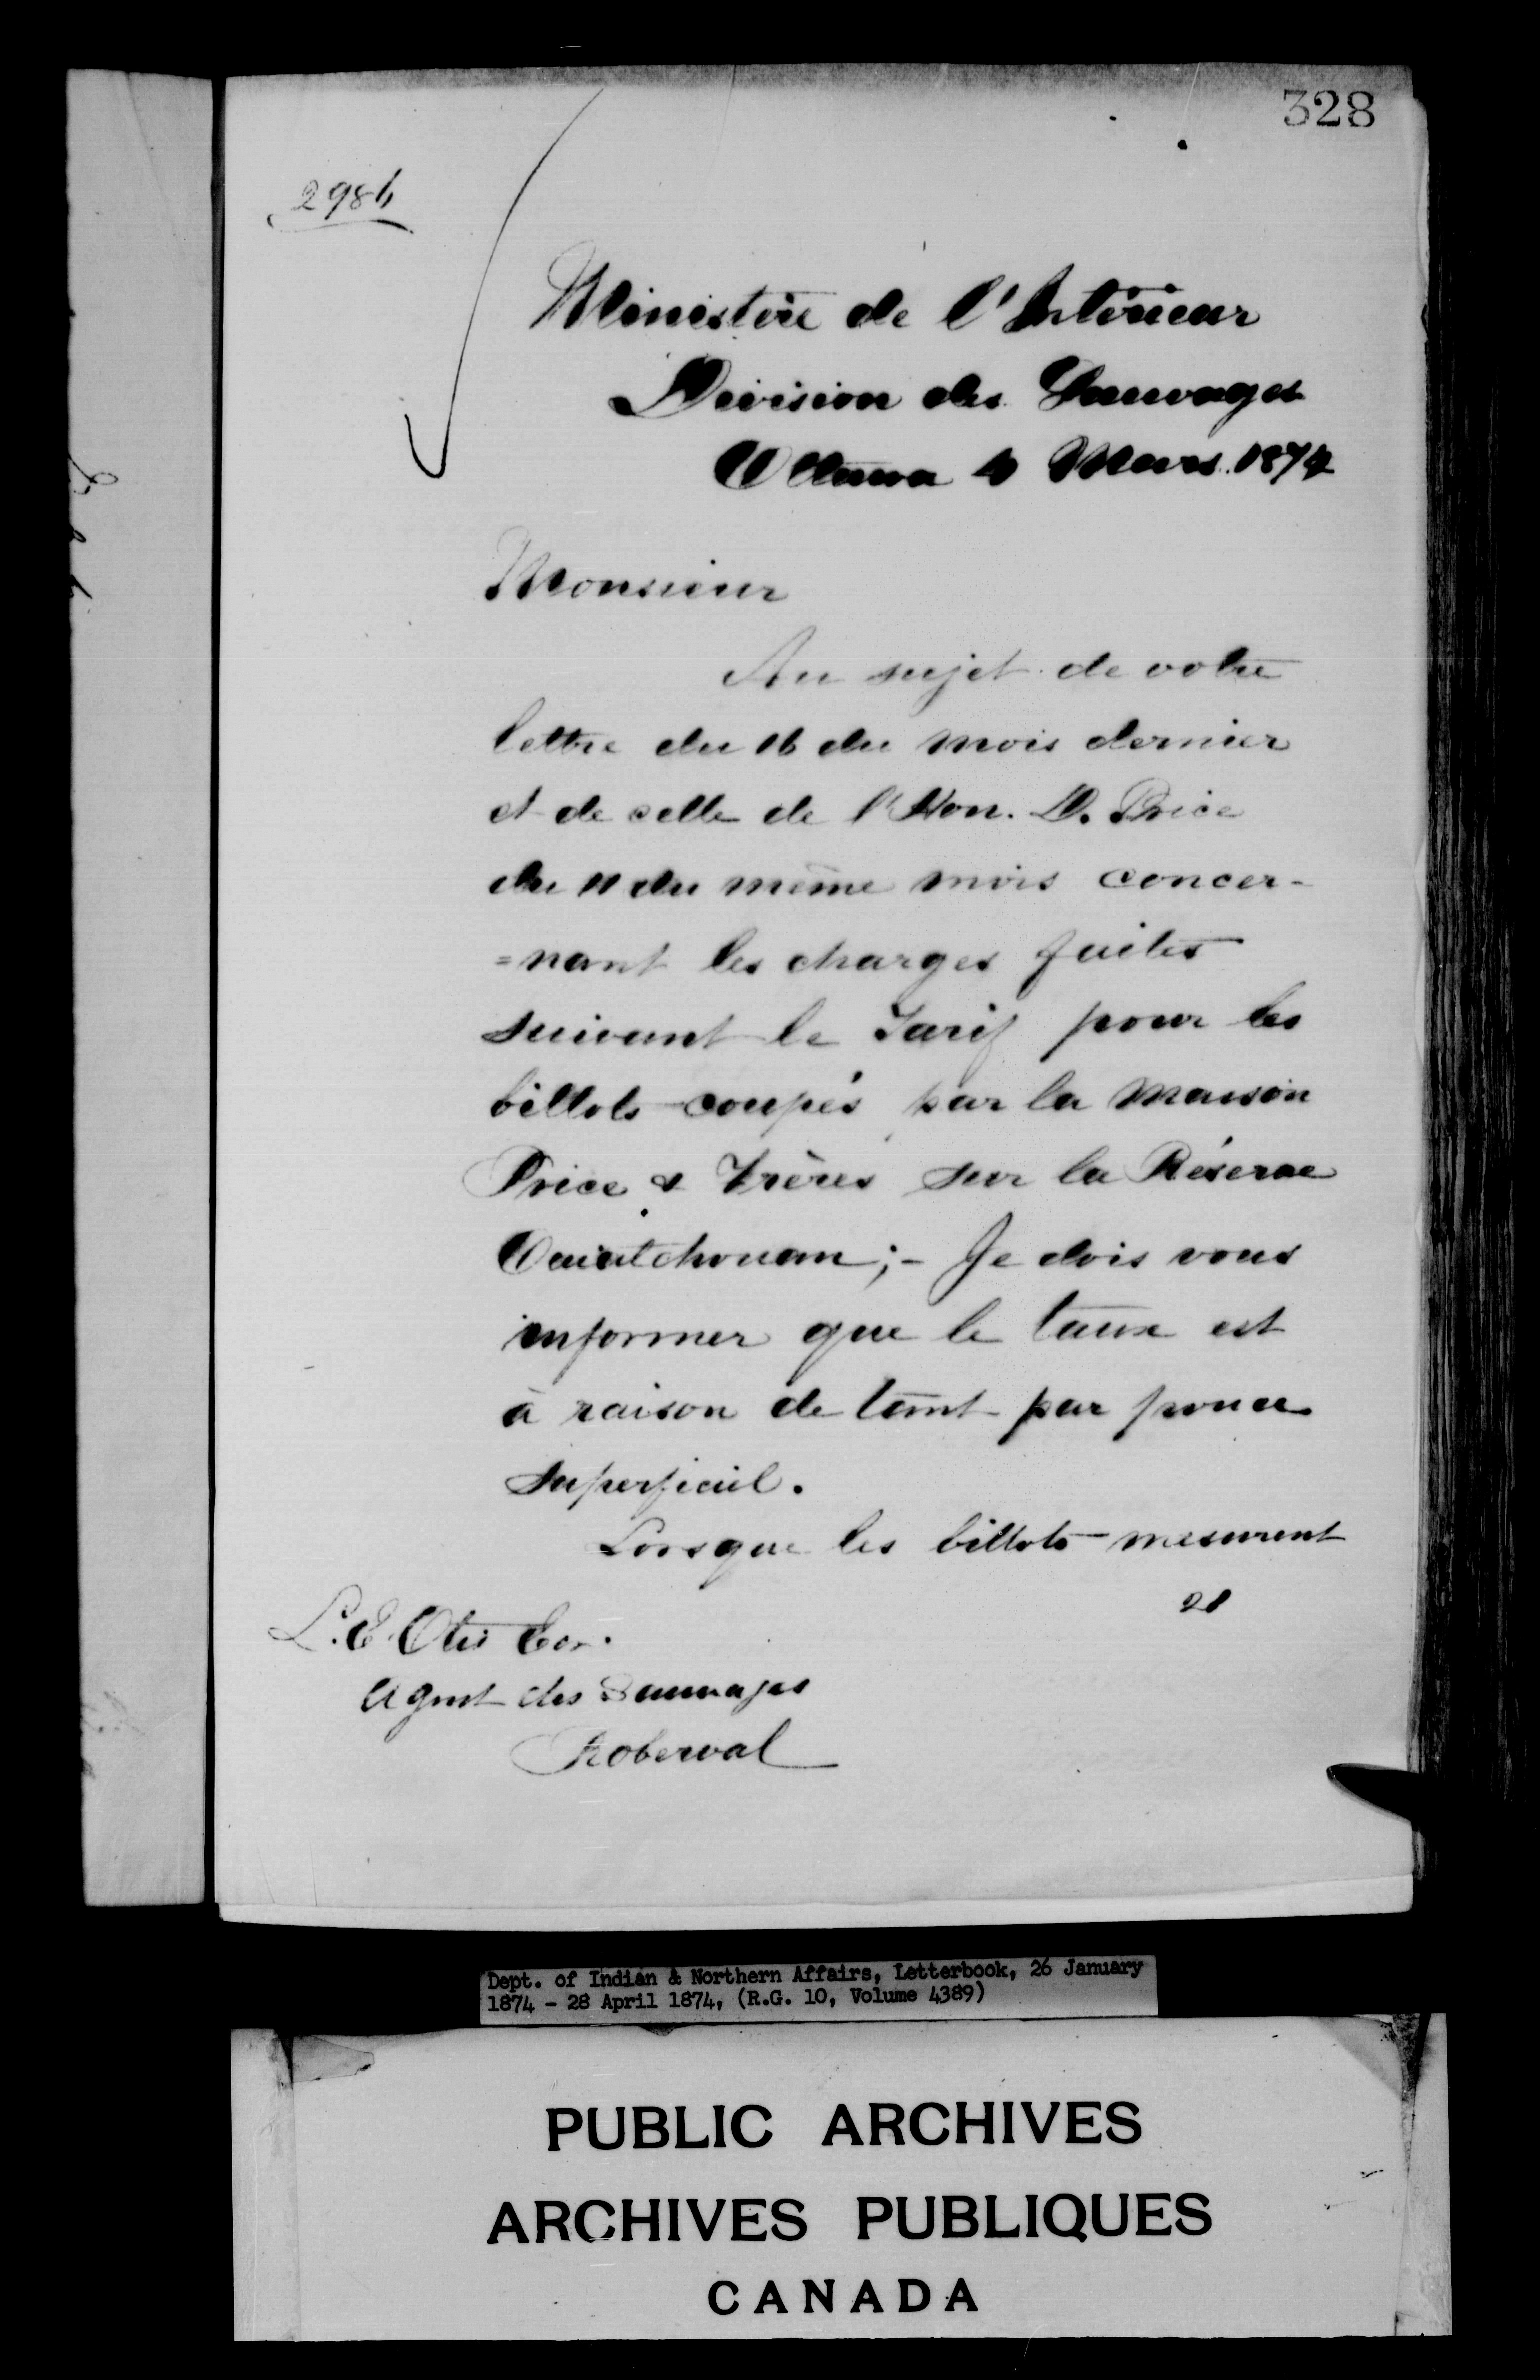 328
2986
Ministère de l'Intérieur
Division des Sauvages
Ottawa 4 Mars 1874
Monsieur
Au sujet de votre
lettre du 16 du mois dernier
et de celle de l'Hon. D. Price
du 11 du même mois concer-
=nant les charges faites
suivant le Tarif pour les
billots coupés par la Maison
Price & Frères sur la Réserve
Ouiatchouan;- Je dois vous
informer que le taux est
à raison de tant par pouce
superficiel.
Lorsque les billots mesurent
L. E. Otis Ecr.
Agent des Sauvages
Roberval
Dept. of Indian & Northern Affairs, Letterbook, 26 January
1874 - 28 April 1874, (R.G. 10, Volume 4389)
PUBLIC ARCHIVES
ARCHIVES PUBLIQUES
CANADA